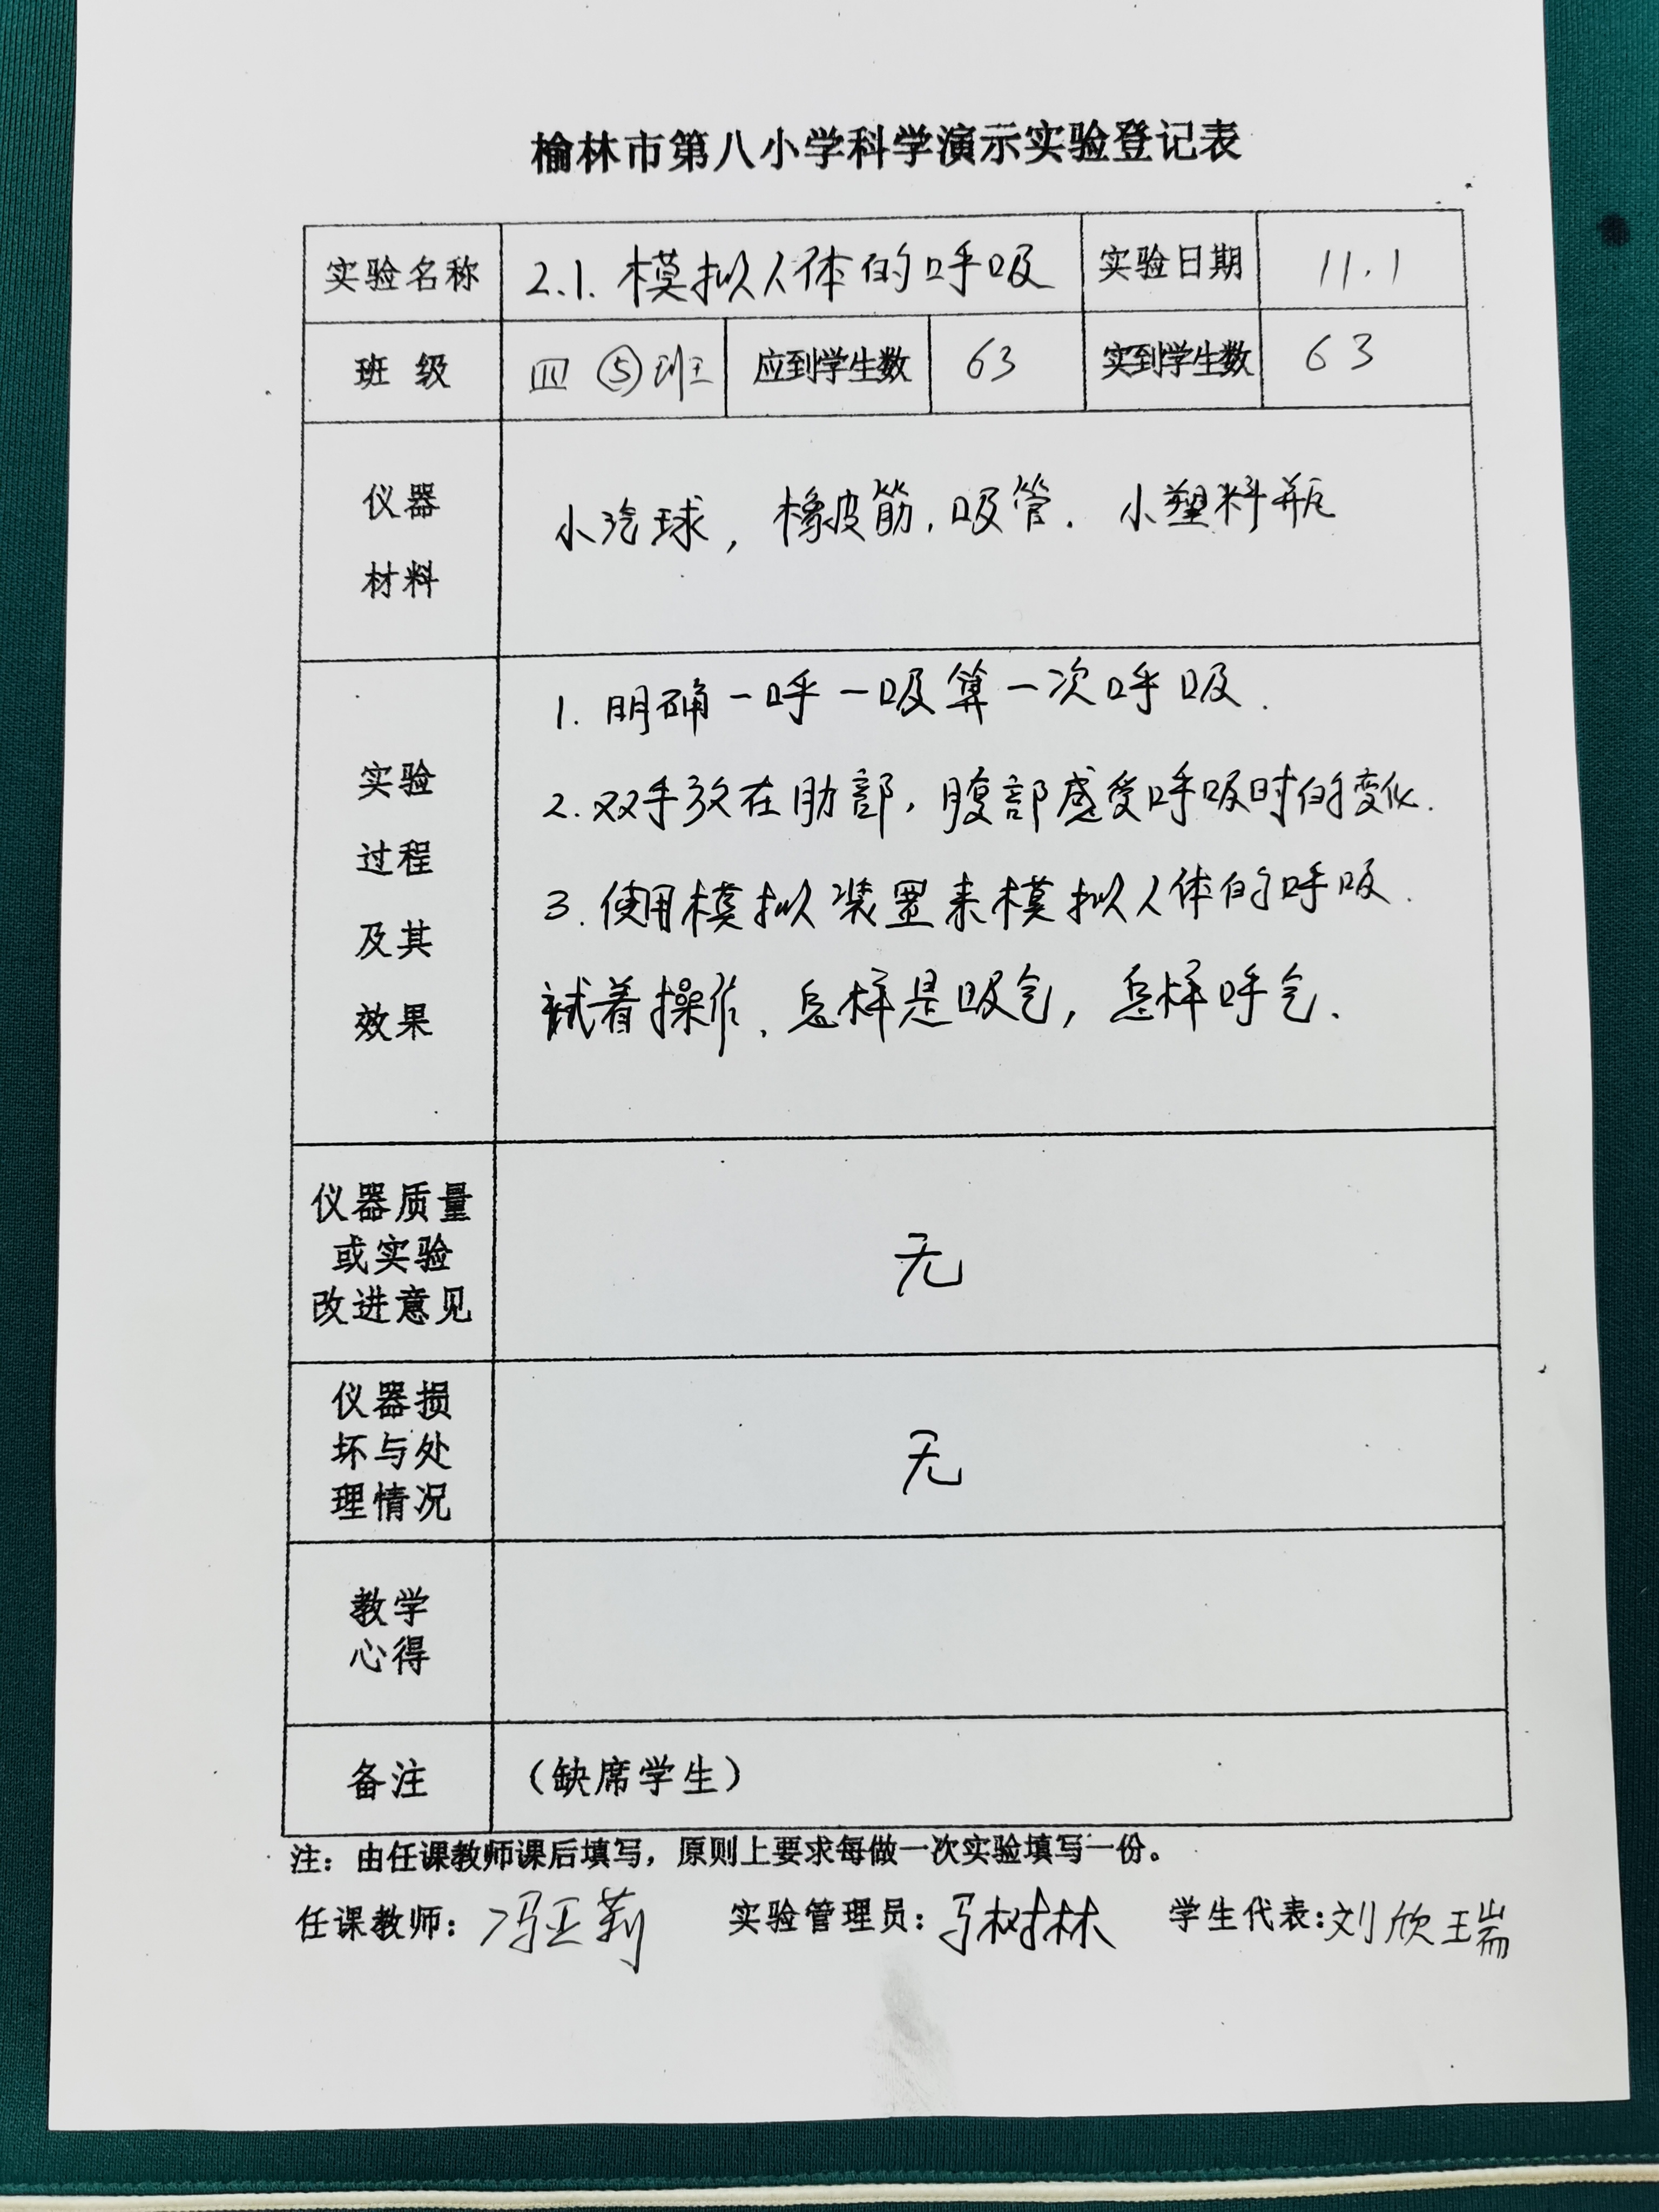 榆林市第八小学科学演示实验登记表
实验名称 2.1.模拟人体的呼吸 实验日期 11.1
班 级 四 ⑤班 应到学生数 63 实到学生数 63
仪器
材料
小汽球，橡皮筋，吸管．小塑料瓶
实验
过程
及其
效果
1. 明确一呼一吸算一次呼吸．
2. 双手放在肋部，腹部感受呼吸时的变化．
3. 使用模拟装置来模拟人体的呼吸．
试着操作、怎样是吸气，怎样呼气．
仪器质量
或实验
改进意见
无
仪器损
坏与处
理情况
无
教学
心得
备注 （缺席学生）
注：由任课教师课后填写，原则上要求每做一次实验填写一份。
任课教师：冯亚莉 实验管理员：马树林 学生代表：刘欣瑞